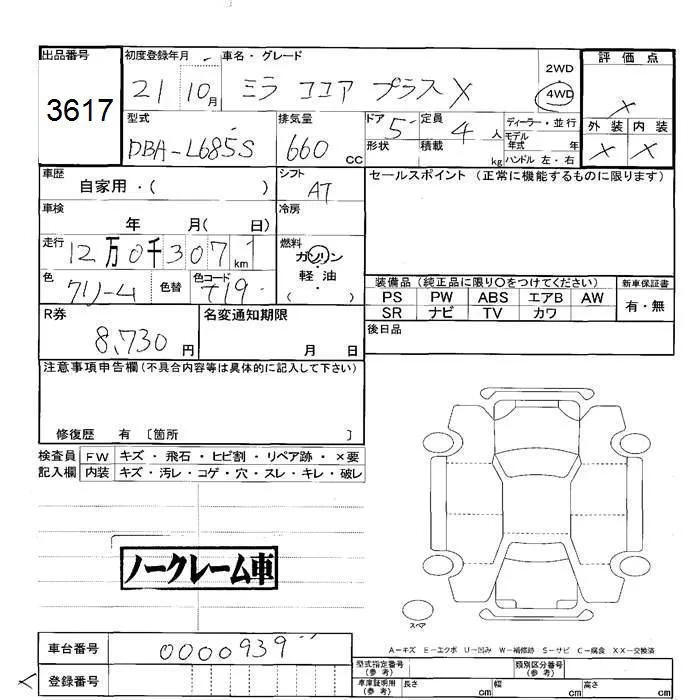 出品番号 初度登録年月 車名・グレード 評価点
3617 21 10月 ミラ ココア プラス X 2WD 4WD X
型式 排気量 ドア 5 定員 4人 ディーラー・並行 外装 内装
DBA-L685S 660 CC 形状 積載 kg モデル年式 年 ハンドル 左・右 X X
車歴 シフト セールスポイント (正常に機能するものに限ります)
自家用・( ) AT
車検 冷房
年 月( 日)
走行 燃料
12万0千307km ガソリン
色 色替 色コード 軽・油 装備品 (純正品に限り○をつけてください) 新車保証書
クリーム T19 ( ) PS PW ABS エアB AW 有・無
SR ナビ TV カワ
R券 名変通知期限 後日品
8,730円 月 日
注意事項申告欄(不具合内容等は具体的に記入して下さい)
修復歴 有 〔箇所 〕
検査員 FW キズ・飛石・ヒビ割・リペア跡・×要
記入欄 内装 キズ・汚レ・コゲ・穴・スレ・キレ・破レ
ノークレーム車
スペア
A−キズ E−エクボ U−凹み W−補修跡 S−サビ C−腐食 XX−交換済
車台番号 0000939
登録番号
型式指定番号 (参考) 類別区分番号 (参考)
車庫証明用 (参考) 長さ cm 幅 cm 高さ cm